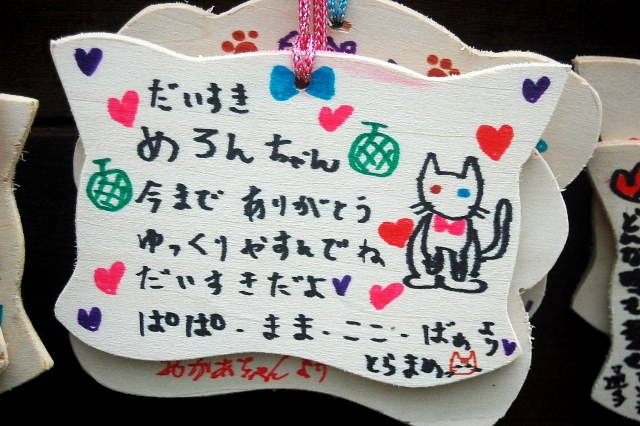 だいすき
めろんちゃん
今まで ありがとう
ゆっくりやすんでね
だいすきだよ
ぱぱ・まま・ここ・ばぁより
とらまめ
おかあちゃんより